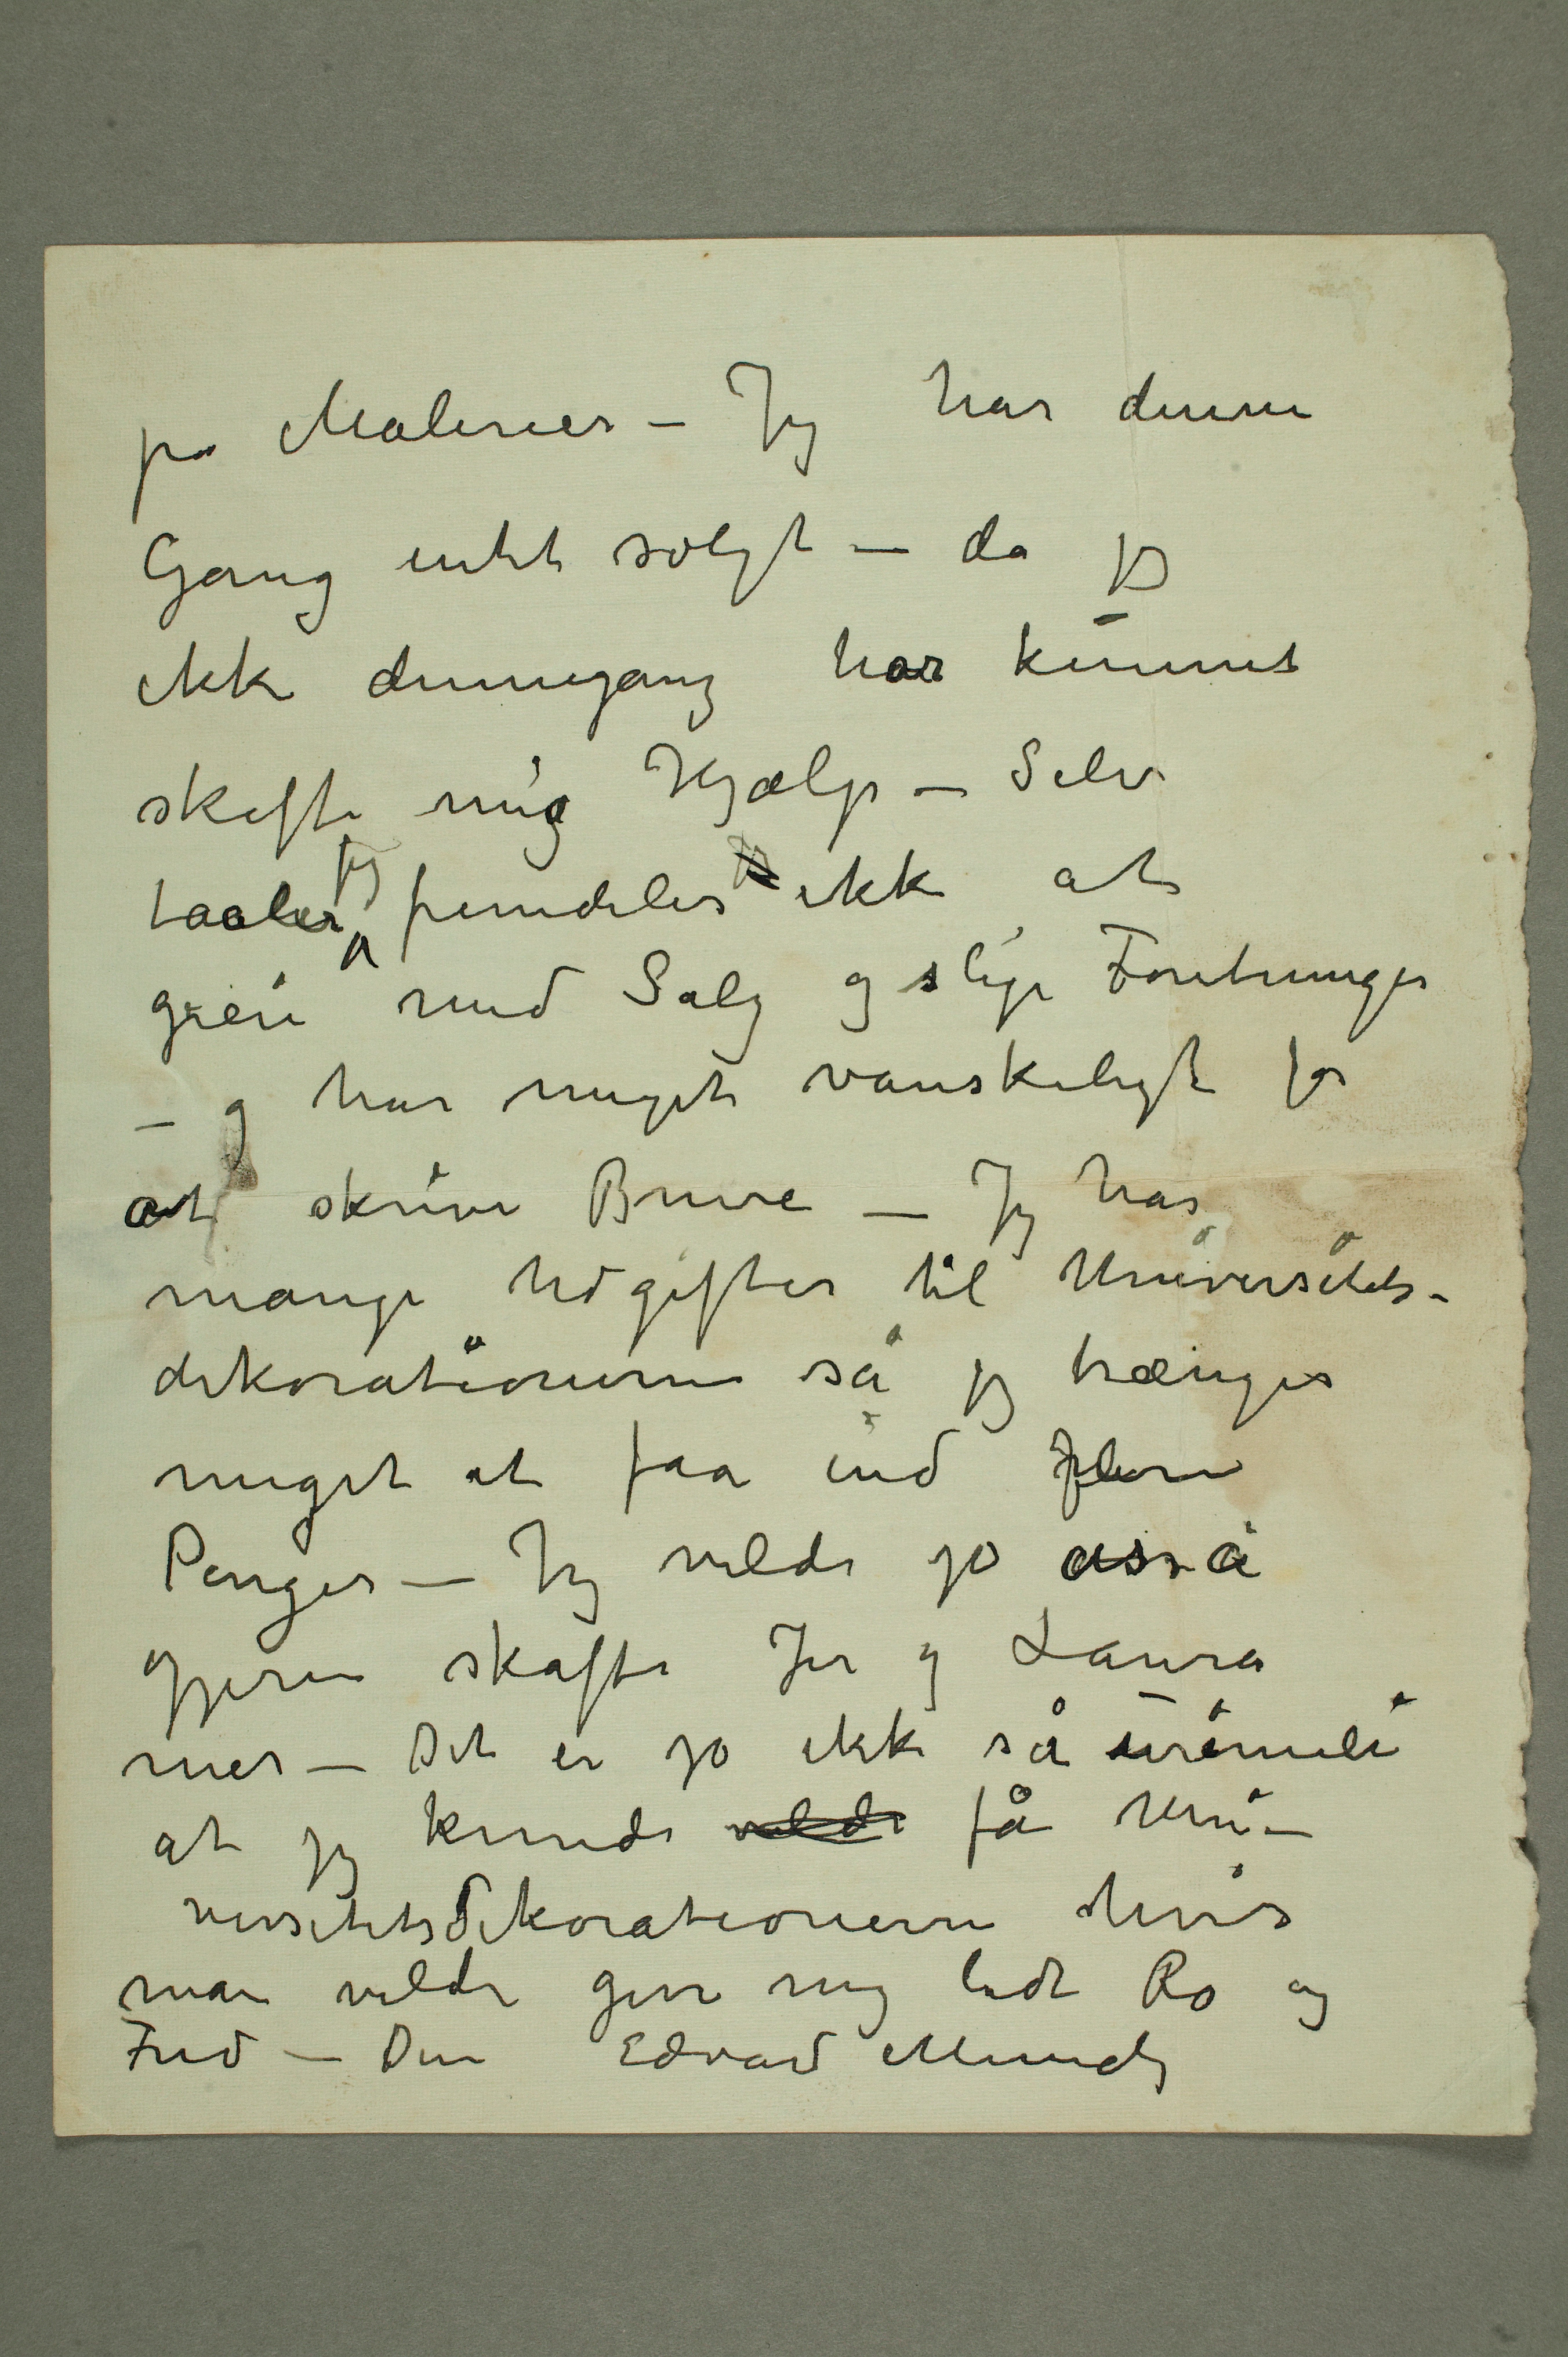 på Malerier – Jeg har denne
Gang intet solgt – da jeg
ikke dennegang har kunnet
skaffe mig Hjælp – Selv
taaler jeg fremdeles ikke at
greie med Salg og slige Foretninger
– og har meget vanskeligt for
at skrive Breve – Jeg har
mange Udgifter til Universitets-
dekorationerne så jeg trænger
meget at faa ind flere
Penger – Jeg vilde jo også
gjerne skaffe Jer og Laura
mer – Det er jo ikke så urimeli
at jeg kunde vilde få Uni-
versitetsdekorationerne hvis
man vilde give mig lidt Ro og
Fred – Din Edvard Munch